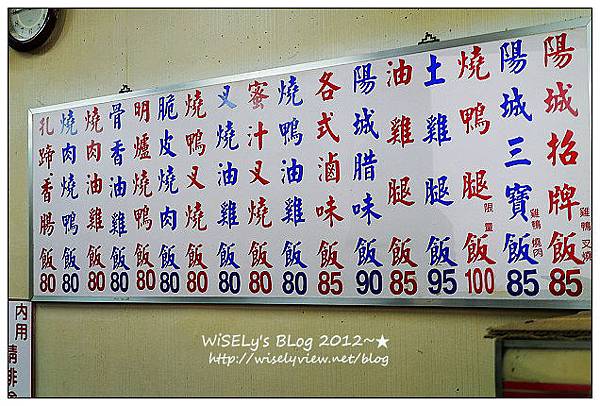 陽城招牌飯 雞鴨叉燒 85
陽城三寶飯 雞鴨燒肉 85
燒鴨腿飯 限量 100
土雞腿飯 95
油雞腿飯 85
陽城腊味飯 90
各式滷味飯 85
燒鴨油雞飯 80
蜜汁叉燒飯 80
叉燒油雞飯 80
燒鴨叉燒飯 80
脆皮燒肉飯 80
明爐燒鴨飯 80
骨香油雞飯 80
燒肉油雞飯 80
燒肉燒鴨飯 80
扎蹄香腸飯 80
內用
請排
WiSELy's BLog 2012~★
http://wiselyview.net/blog